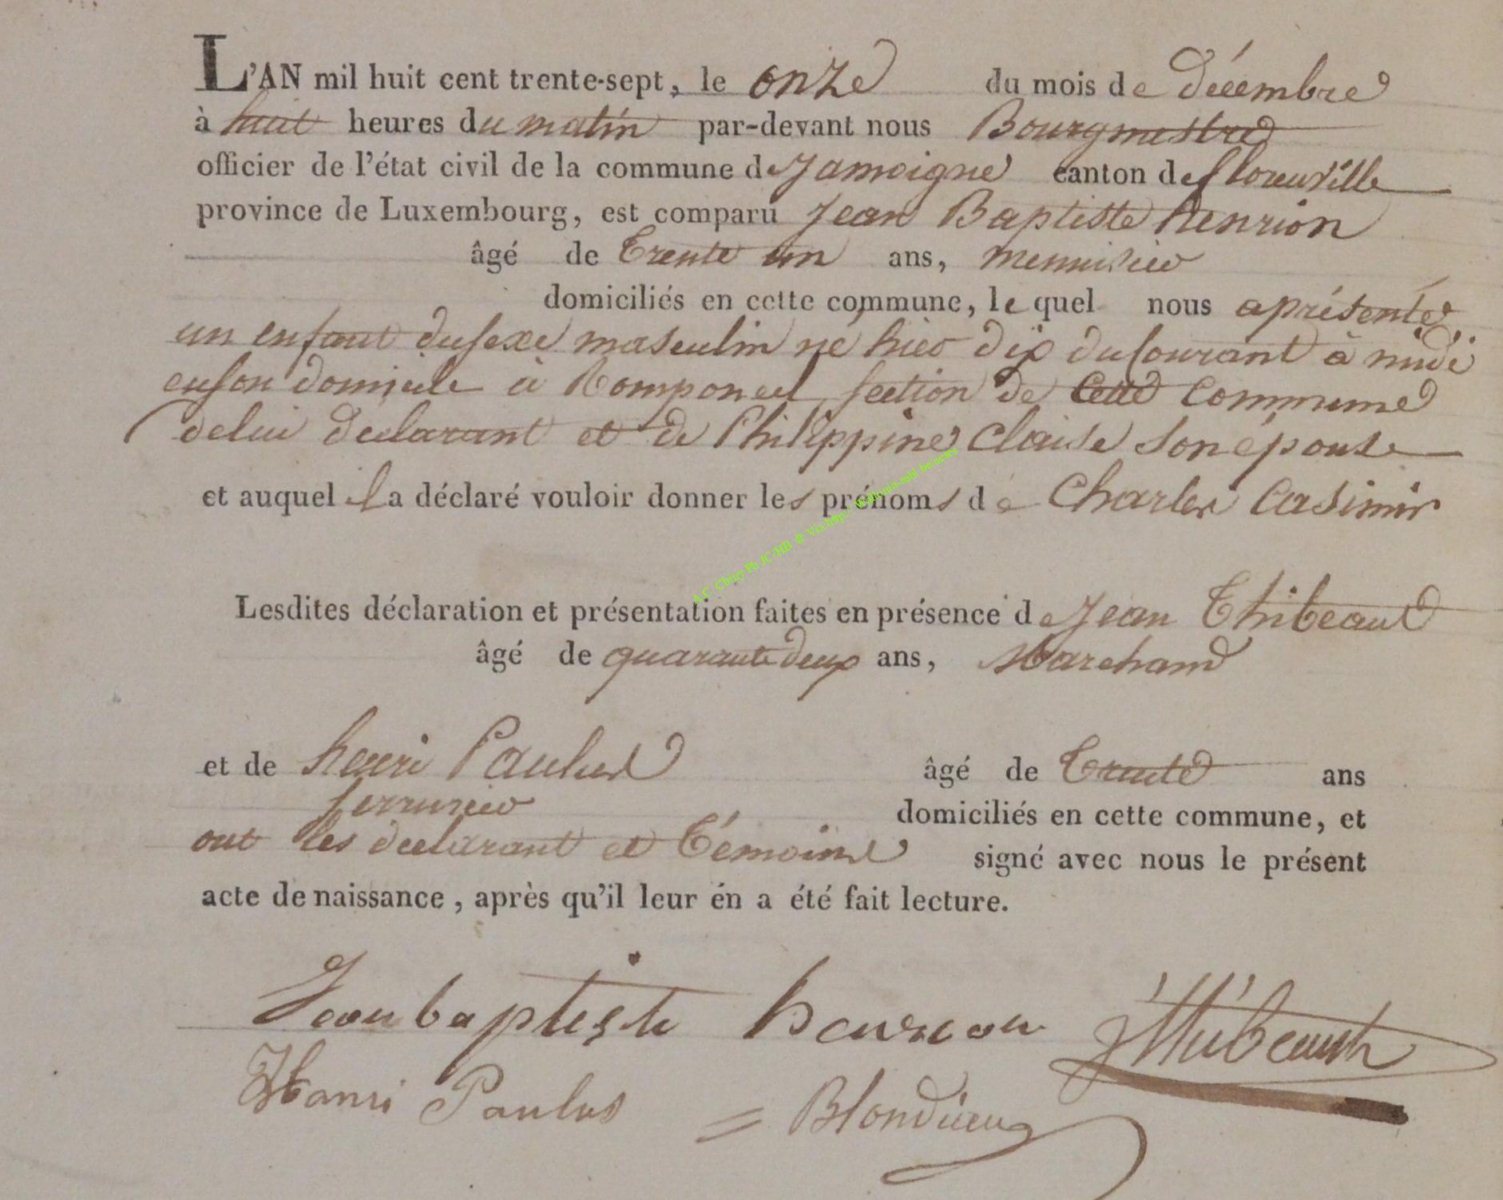 L'AN mil huit cent trente-sept, le onze du mois de Décembre
à huit heures du matin par-devant nous Bourgmestre
officier de l'état civil de la commune de Jamoigne canton de florenville
province de Luxembourg, est comparu Jean Baptiste henrion
âgé de Trente un ans, menuisier
domiciliés en cette commune, le quel nous a présenté
un enfant du sexe masculin né hier dix du Courant à midi
en son domicile à Romponcel section de Cette Commune
de lui declarant et de Philippine Claise son épouse
et auquel il a déclaré vouloir donner les prénoms de Charles Casimir
Lesdites déclaration et présentation faites en présence de Jean Thibeaut
âgé de quarante deux ans, Marchand
et de henri Paulus âgé de Trente ans
serrurier domiciliés en cette commune, et
ont les declarant et Témoins signé avec nous le présent
acte de naissance, après qu'il leur én a été fait lecture.
Jean baptiste henrion JThibeault
Hanri Paulus = Blondieux